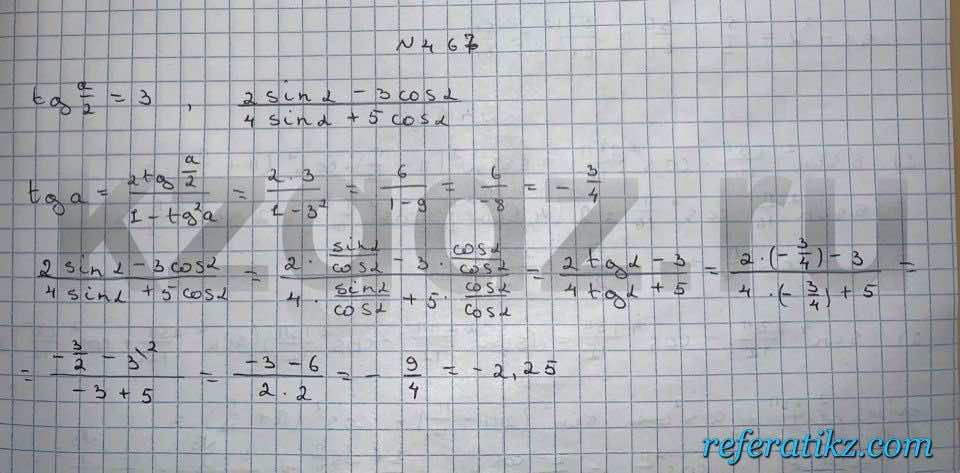 N 467
tg a/2 = 3 , (2 sin α - 3 cos α)/(4 sin α + 5 cos α)
tg a = (2 tg a/2)/(1 - tg² a) = (2 · 3)/(1 - 3²) = 6/(1 - 9) = 6/(-8) = - 3/4
(2 sin α - 3 cos α)/(4 sin α + 5 cos α) = (2 · sin α/cos α - 3 · cos α/cos α)/(4 · sin α/cos α + 5 · cos α/cos α) = (2 tg α - 3)/(4 tg α + 5) = (2 · (- 3/4) - 3)/(4 · (- 3/4) + 5) =
= (- 3/2 - 3\2)/(- 3 + 5) = (- 3 - 6)/(2 · 2) = - 9/4 = - 2,25
kzgdz.ru
referatikz.com